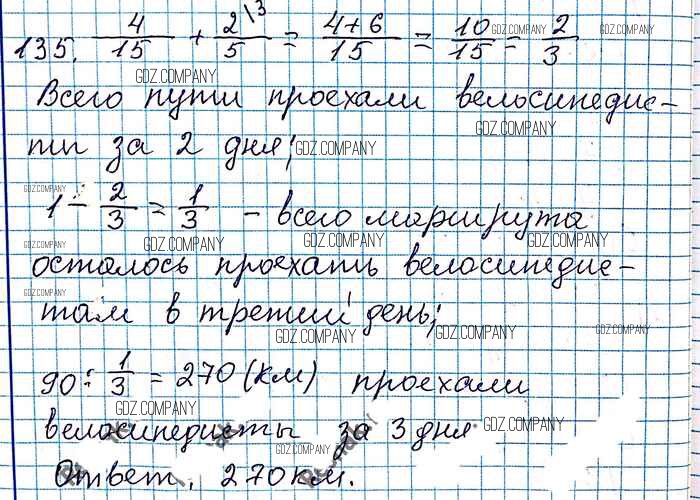 135. 4/15 + 2\3/5 = 4+6/15 = 10/15 = 2/3
GDZ.COMPANY GDZ.COMPANY
GDZ.COMPANY
Всего пути проехали велосипедис-
GDZ.COMPANY
ты за 2 дня; GDZ.COMPANY
GDZ.COMPANY
1 - 2/3 = 1/3 - всего маршрута
GDZ.COMPANY GDZ.COMPANY GDZ.COMPANY GDZ.COMPANY
осталось проехать велосипедис-
GDZ.COMPANY
там в третий день;
GDZ.COMPANY GDZ.COMPANY GDZ.COMPANY
90 : 1/3 = 270 (км) проехали
GDZ.COMPANY
велосипедисты за 3 дня GDZ.COMPANY
GDZ.COMPANY
Ответ. 270 км.